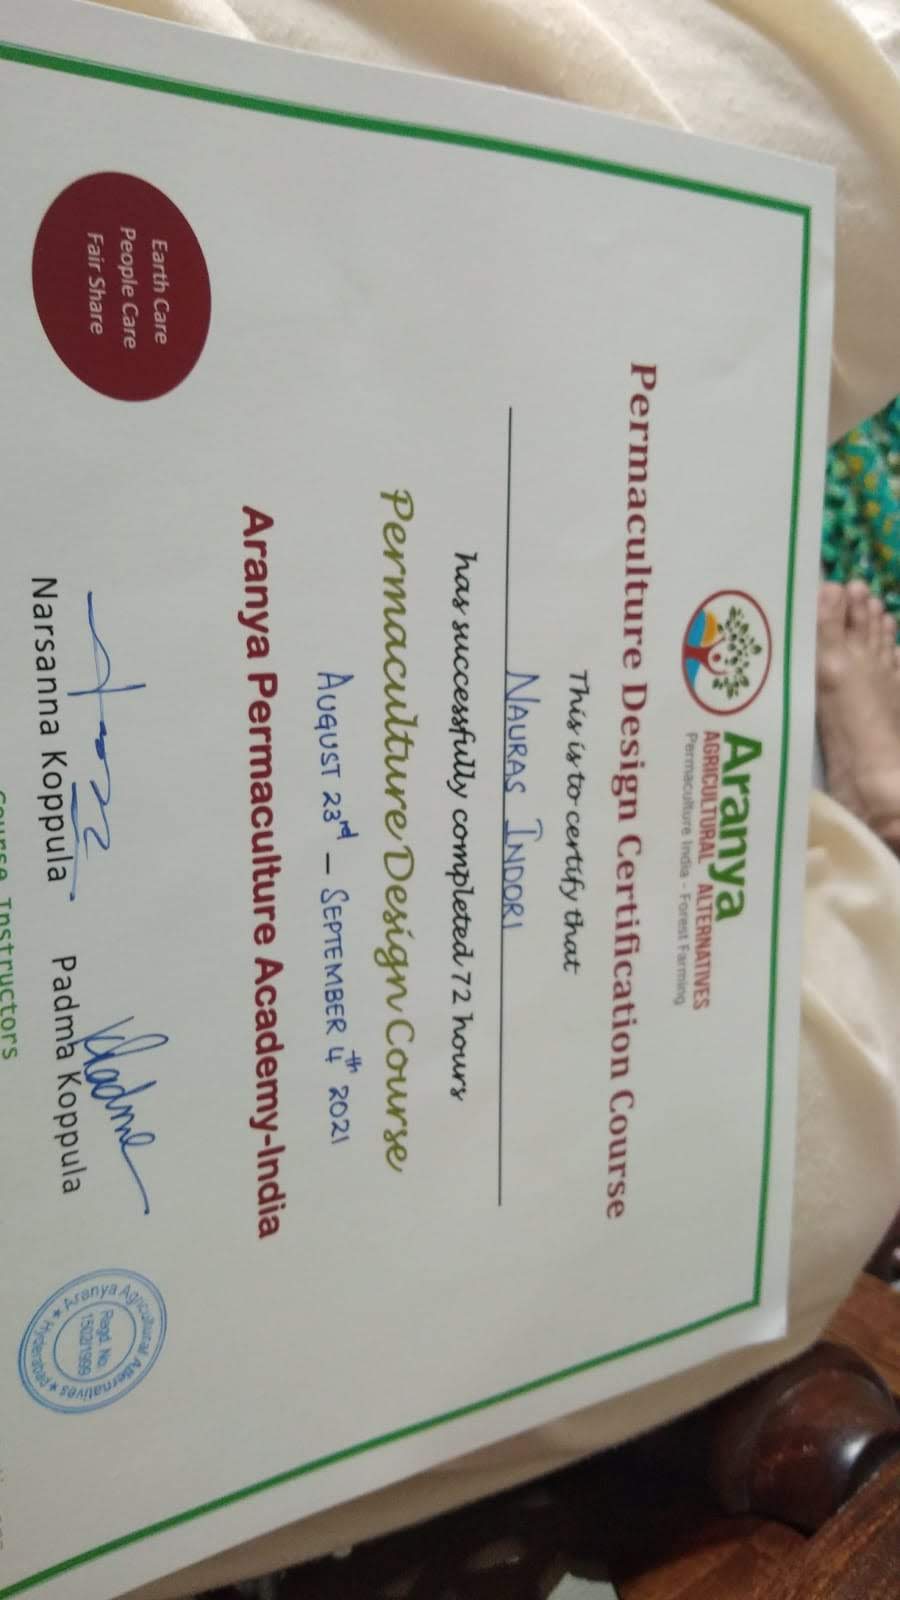 Aranya
AGRICULTURAL ALTERNATIVES
Permaculture India - Forest Farming
Permaculture Design Certification Course
This is to certify that
NAURAS INDORI
has successfully completed 72 hours
Permaculture Design Course
AUGUST 23rd - SEPTEMBER 4th 2021
Aranya Permaculture Academy-India
Earth Care
People Care
Fair Share
Narsanna Koppula
Padma Koppula
Course Instructors
Aranya Agricultural Alternatives
Regd. No.
1502/1999
Hyderabad